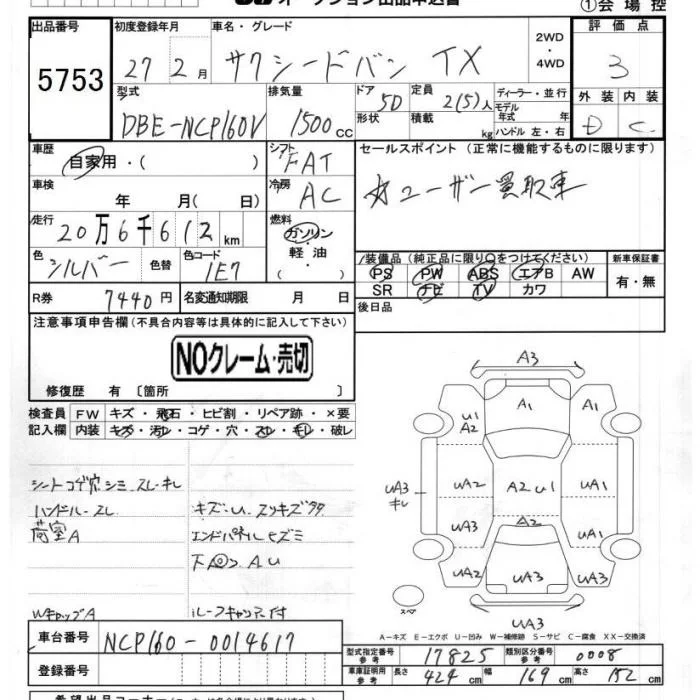 ①会場控
出品番号 初度登録年月 車名・グレード 評価点
5753 27年2月 サクシードバン TX 2WD・4WD 3
型式 排気量 ドア 5D 定員 2(5)人 ディーラー・並行 外装 内装
DBE-NCP160V 1500cc 形状 積載 kg モデル年式 年 ハンドル 左・右 D C
車歴 自家用・( ) シフト FAT セールスポイント (正常に機能するものに限ります)
車検 年 月( 日) 冷房 AC ☆ユーザー買取車
走行 20万6千612km 燃料 ガソリン・軽油
色 シルバー 色替 色コード 1E7 装備品(純正品に限り○をつけてください) 新車保証書
PS PW ABS エアB AW 有・無
SR ナビ TV カワ
R券 7440円 名変通知期限 月 日 後日品
注意事項申告欄(不具合内容等は具体的に記入して下さい)
NOクレーム・売切
修復歴 有〔箇所 〕
検査員 FW キズ・飛石・ヒビ割・リペア跡・×要
記入欄 内装 キズ・汚レ・コゲ・穴・スレ・キレ・破レ
シートコゲ穴シミ、スレ・キレ
ハンドルスレ キズ・U、スリキズタタ
荷室A エンドパネルヒズミ
下回りAU
WキャップA
A3
A1 A1
U1
A2
UA3 キレ UA2 A2 U1 UA1
UA3 UA1
UA2 UA3 UA3
UA3
スペア
A-キズ E-エクボ U-凹み W-補修跡 S-サビ C-腐食 XX-交換済
車台番号 NCP160-0014617
型式指定番号 参考 17825 類別区分番号 参考 0008
登録番号 車庫証明用 参考 長さ 424cm 幅 169cm 高さ 152cm